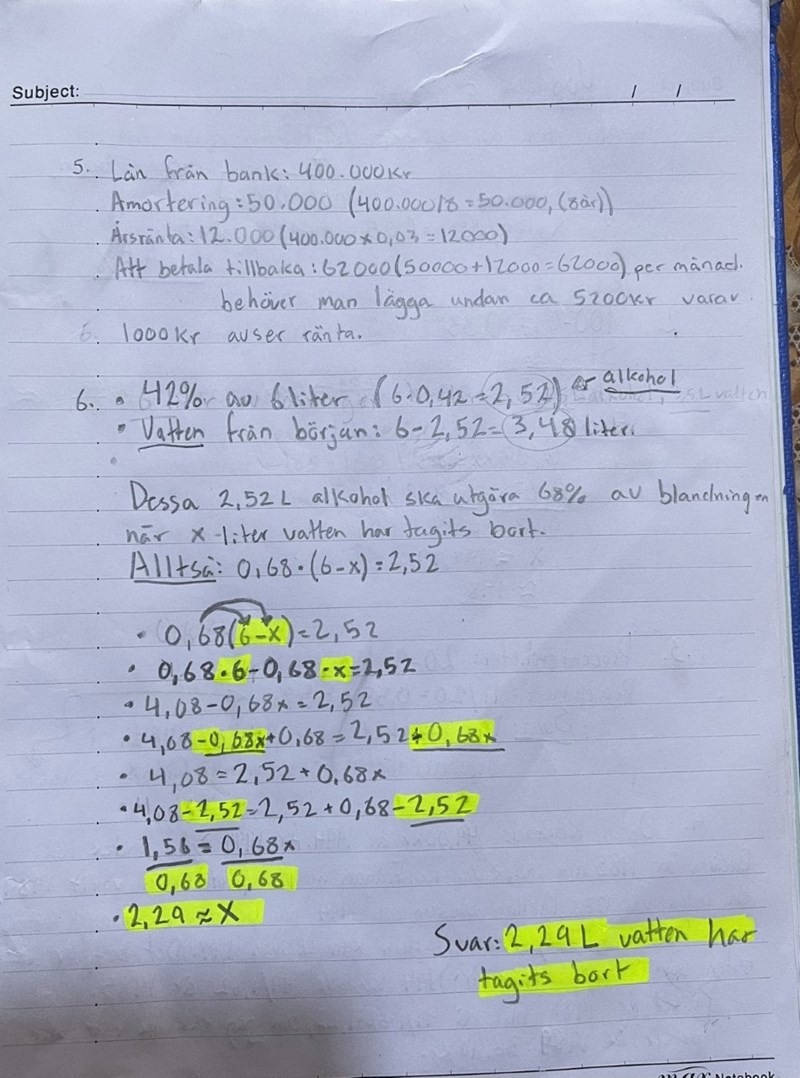 Subject: / /
5. Lån från bank: 400.000Kr
Amortering: 50.000 (400.000/8 = 50.000, (8år))
Årsränta: 12.000 (400.000×0,03=12000)
Att betala tillbaka: 62000 (50000+12000=62000) per månad.
behöver man lägga undan ca 5200kr varav
1000Kr avser ränta.
6. • 42% av 6 liter (6·0,42=2,52) är alkohol
• Vatten från början: 6-2,52=3,48 liter.
Dessa 2,52 L alkohol ska utgöra 68% av blandningen
när x-liter vatten har tagits bort.
Alltså: 0,68·(6-x)=2,52
• 0,68(6-x)=2,52
• 0,68·6-0,68·x=2,52
• 4,08-0,68x=2,52
• 4,08-0,68x+0,68=2,52+0,68x
• 4,08=2,52+0,68x
• 4,08-2,52=2,52+0,68-2,52
• 1,56=0,68x
0,68 0,68
• 2,29≈X
Svar: 2,29L vatten har
tagits bort
Notebook